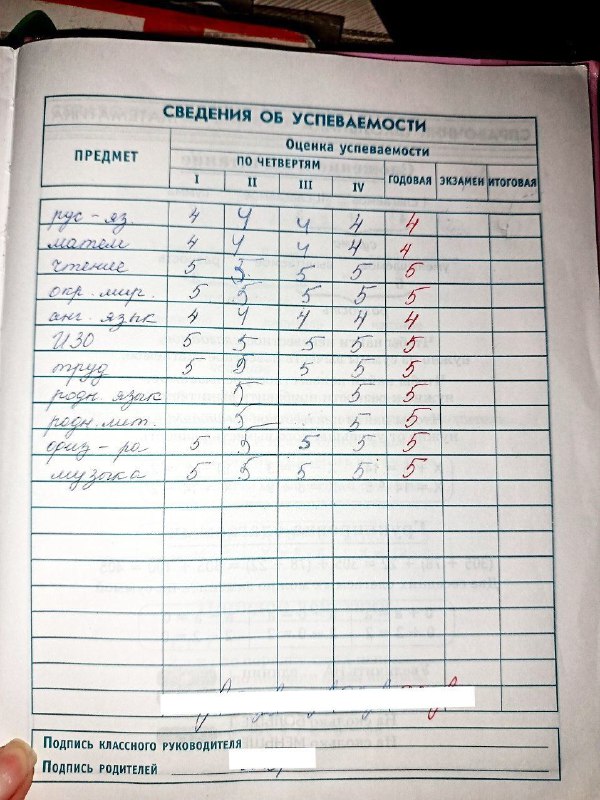 СВЕДЕНИЯ ОБ УСПЕВАЕМОСТИ
ПРЕДМЕТ
Оценка успеваемости
ПО ЧЕТВЕРТЯМ
I II III IV ГОДОВАЯ ЭКЗАМЕН ИТОГОВАЯ
рус-яз 4 4 4 4 4
матем 4 4 4 4 4
чтение 5 5 5 5 5
окр. мир. 5 5 5 5 5
анг. язык 4 4 4 4 4
ИЗО 5 5 5 5 5
труд 5 5 5 5 5
родн. язык 5 5 5
родн. лит. 5 5 5
физ-ра 5 5 5 5 5
музыка 5 5 5 5 5
Подпись классного руководителя
Подпись родителей